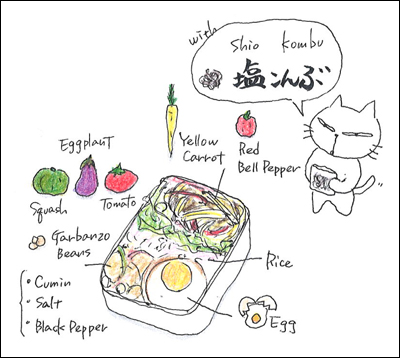 with
shio kombu
塩こんぶ
Eggplant
Yellow
Carrot
Red
Bell Pepper
Squash
Tomato
Garbanzo
Beans
Rice
• Cumin
• Salt
• Black Pepper
Egg